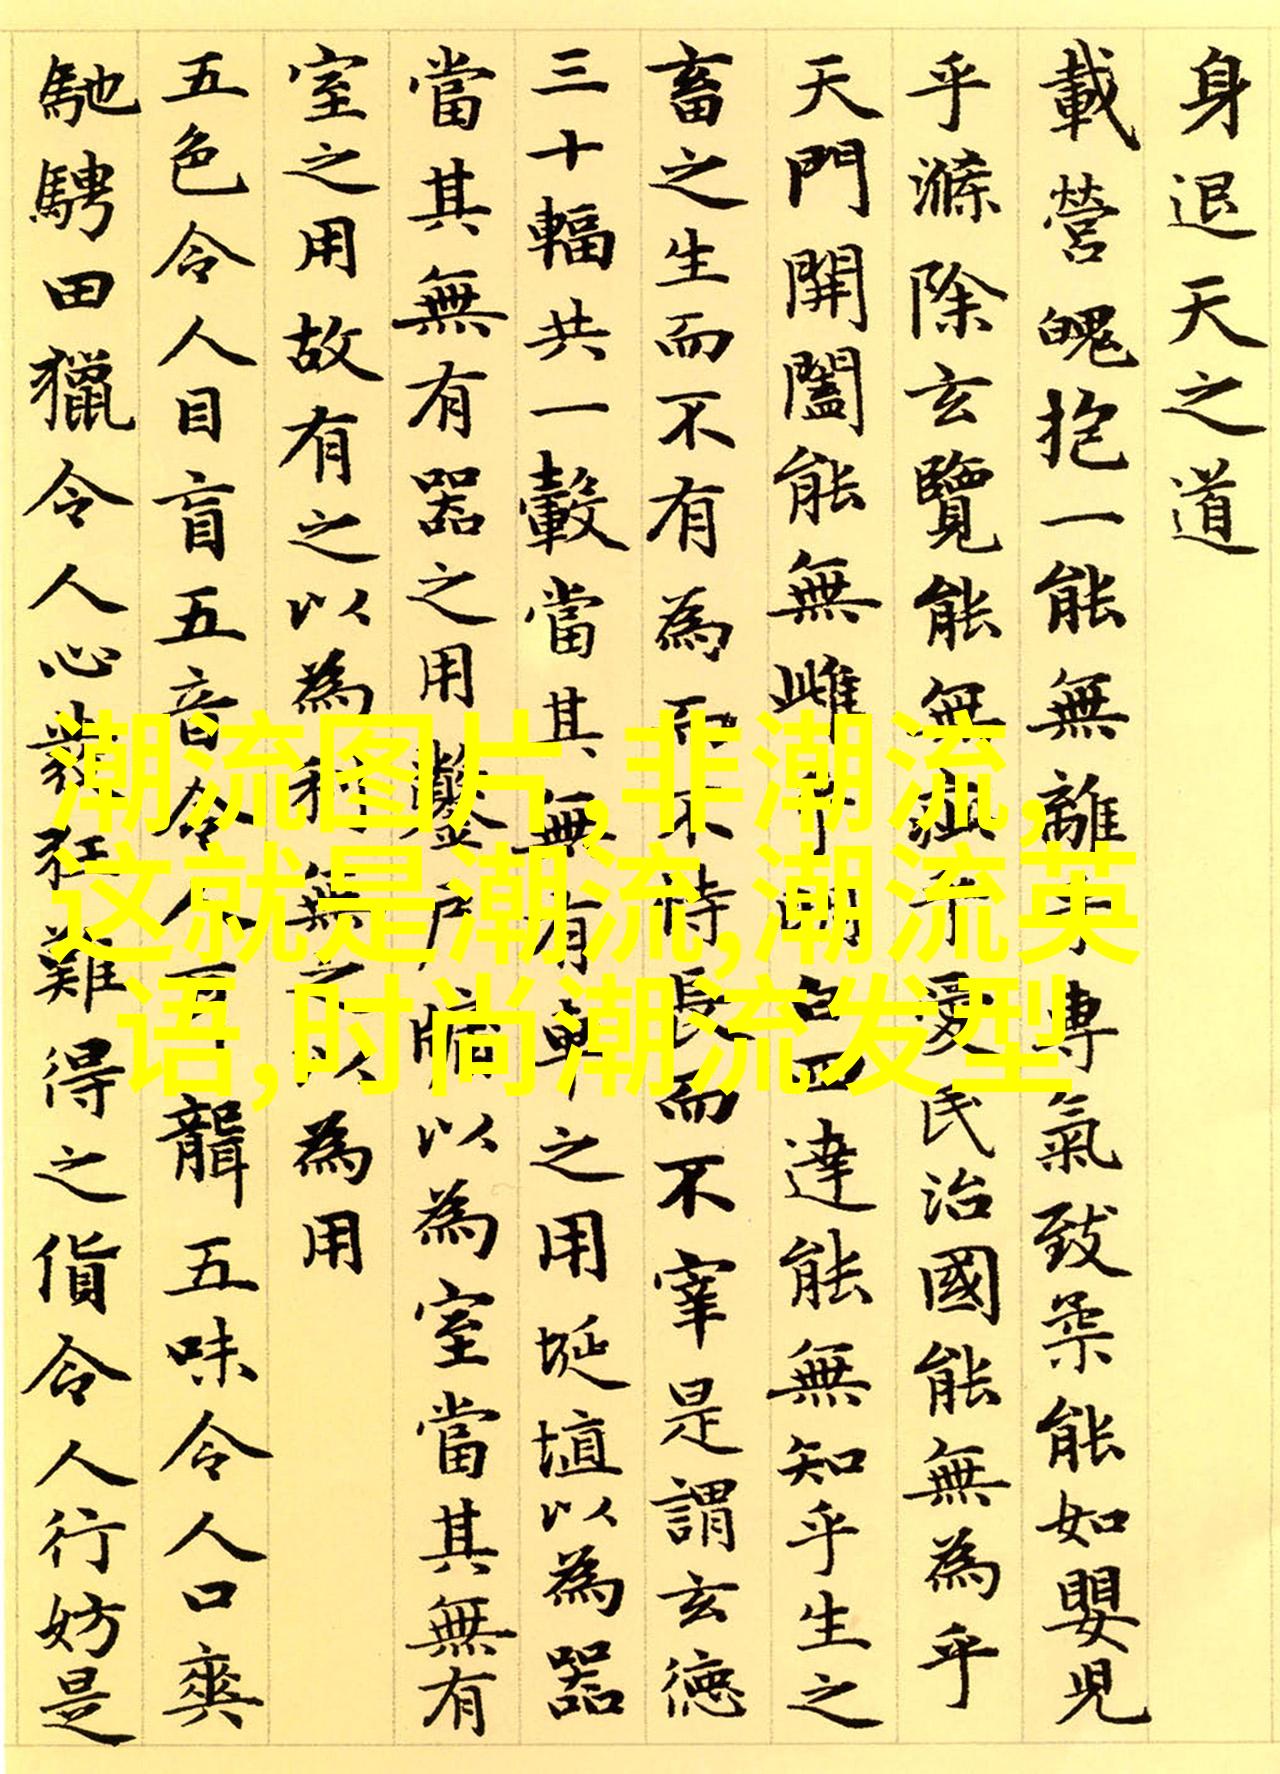 身退天之道
載營魄抱一能無離乎專氣致柔能如嬰兒
乎滌除玄覽能無疵乎愛民治國能無為乎
天門開闔能無雌乎明白四達能無知乎生之
畜之生而不有為而不恃長而不宰是謂玄德
三十輻共一轂當其無有車之用埏埴以為器
當其無有器之用鑿戶牖以為室當其無有
室之用故有之以為利無之以為用
五色令人目盲五音令人耳聾五味令人口爽
馳騁田獵令人心發狂難得之貨令人行妨是
潮流图片,非潮流,
这就是潮流,潮流英
语,时尚潮流发型